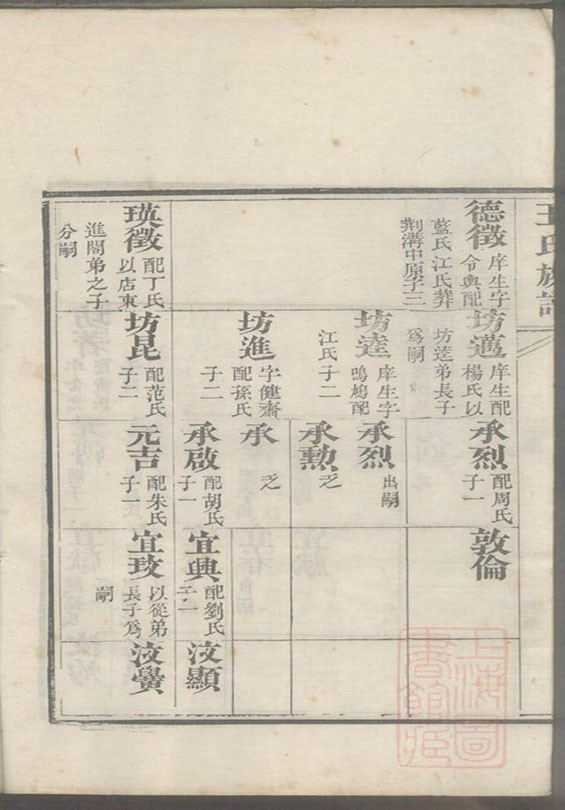 王氏族譜
德徵
庠生字
令輿配
藍氏江氏葬
荆溝中原子三
瑛徵
配丁氏
以店東
進閣弟之子
分嗣
坊邁
庠生配
楊氏以
坊逵弟長子
爲嗣
坊逵
庠生字
鳴鳩配
江氏子二
坊進
字健齋
配孫氏
子二
坊昆
配范氏
子二
承烈
配周氏
子一
承烈
出嗣
承勲
乏
承
乏
承啟
配胡氏
子一
元吉
配朱氏
子一
敦倫
宜興
配劉氏
子二
宜玟
以從弟
長子爲
嗣
汶顯
汶黌
上海圖
書館藏